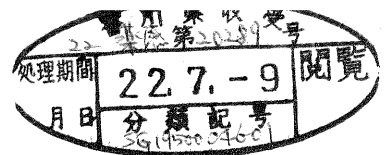 22 第20289号
処理期間 22.7.-9 閲覧
月日 分類記号
SG19500 04601